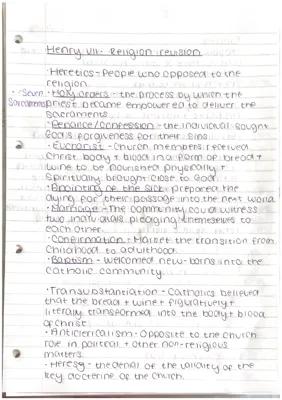 Henry VII - Religion revision
Heretics - People who opposed to the
religion.
• Seven Sacraments • Holy orders - the process by which the
priest became empowered to deliver the
sacraments
• Penance/Confession - the individual sought
God's forgiveness for their sins.
• Eucharist - Church members received
Christ body + blood in a form of bread +
wine to be nourished physically +
spiritually brought close to God.
• Anointing of the sick - prepared the
dying for their passage into the next world
• Marriage - The community could witness
two individuals pledging themselves to
each other.
• Confirmation - Marked the transition from
childhood to adulthood.
• Baptism - welcomed new-borns into the
catholic community.
• Transubstantiation - Catholics believed
that the bread + wine + figuratively +
literally transformed into the body + blood
of Christ.
• Anticlericalism - opposite to the church
role in political + other non-religious
matters.
• Heresy - the denial of the validity of the
key doctrine of the church.